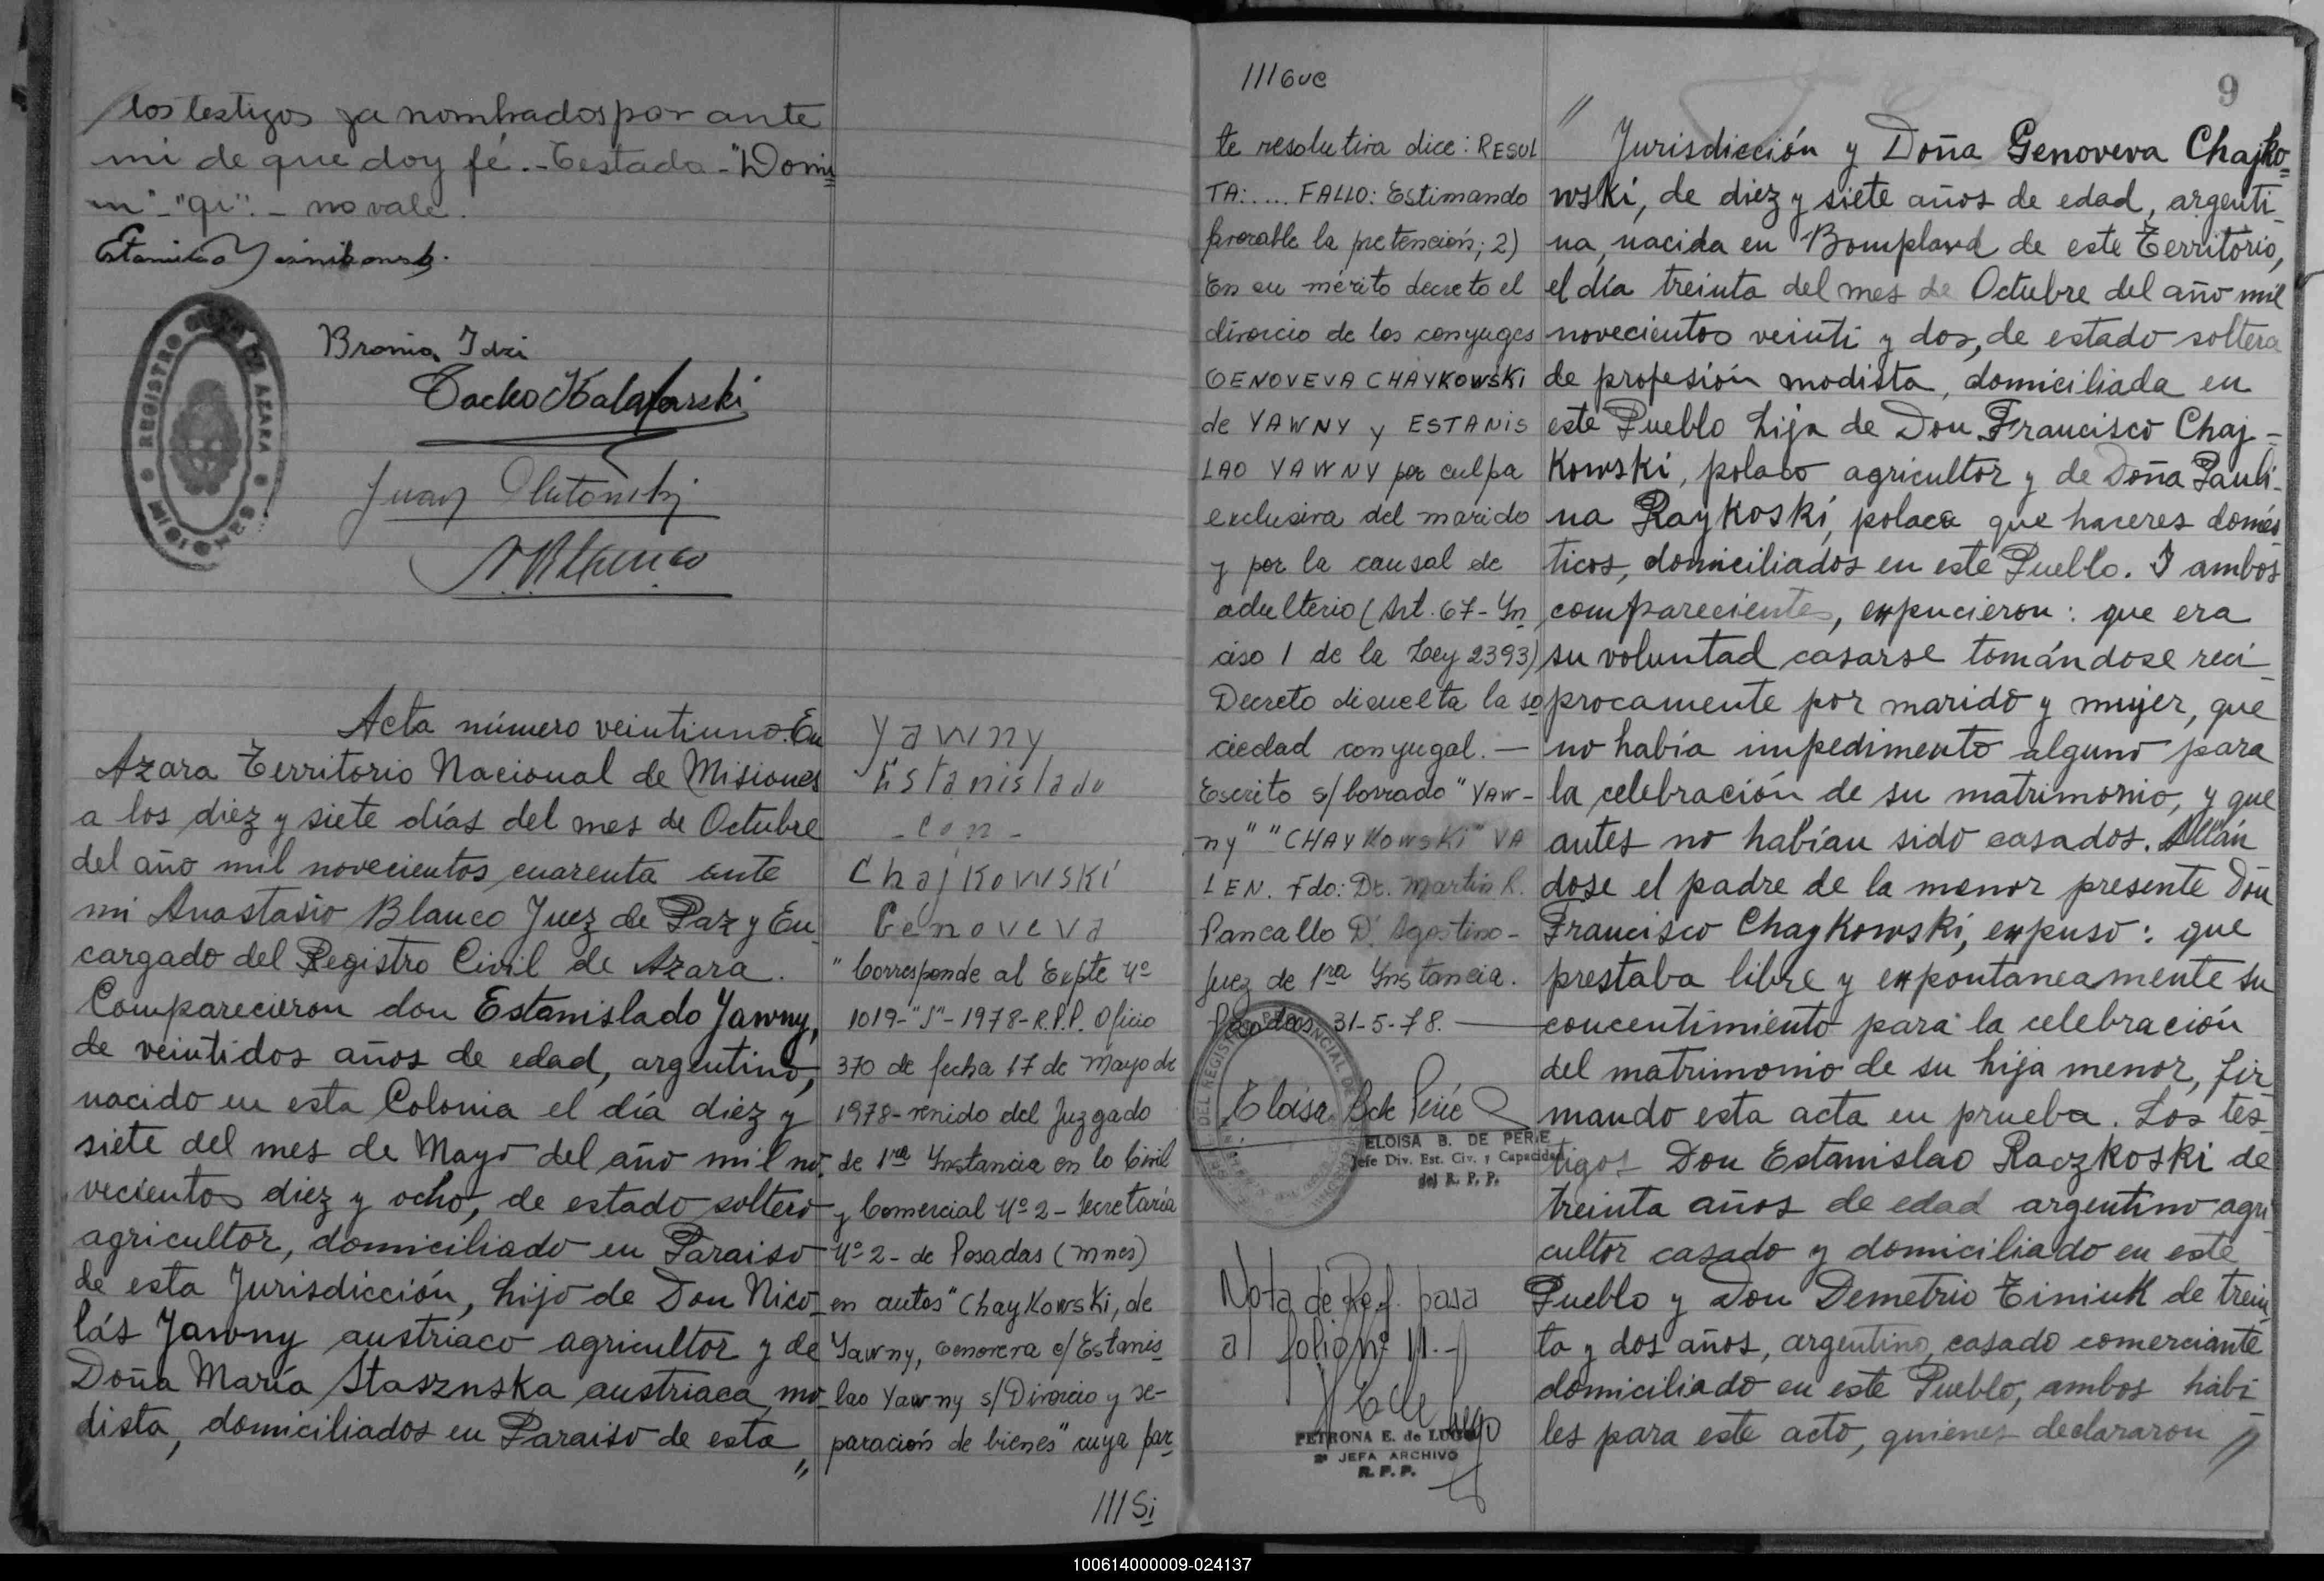 los testigos ya nombrados por ante
mi de que doy fé.- Testada - "Domi
in"-"qi".- no vale.
REGISTRO CIVIL DE AZARA
MISIONES
Bronio Idzi
Tacho Kalafarski
Juan
A Blanco
Acta número veintiuno. En
Azara Territorio Nacional de Misiones
a los diez y siete días del mes de Octubre
del año mil novecientos cuarenta ante
mi Anastasio Blanco Juez de Paz y En
cargado del Registro Civil de Azara.
Comparecieron don Estanislado Jawny,
de veintidos años de edad, argentino,
nacido en esta Colonia el día diez y
siete del mes de Mayo del año mil no-
vecientos diez y ocho, de estado soltero
agricultor, domiciliado en Paraiso
de esta Jurisdicción, hijo de Don Nico-
lás Jawny austriaco agricultor y de
Doña María Stasznska austriaca, mo-
dista, domiciliados en Paraiso de esta "
Yawny
Estanislado
- con -
Chajkowski
Genoveva
"Corresponde al Expte Nº
1019-"J"-1978-R.P.P. Oficio
370 de fecha 17 de Mayo de
1978-venido del Juzgado
de 1ra Instancia en lo Civil
y Comercial Nº 2 - Secretaría
Nº 2 - de Posadas (Mnes)
en autos "Chaykowski, de
Yawny, Genoveva c/Estanis
lao Yawny s/Divorcio y se-
paración de bienes" cuya par-
///Si
///Gue
te resolutiva dice: RESUL
TA:.... FALLO: Estimando
favorable la pretención; 2)
En su mérito decreto el
divorcio de los conyuges
GENOVEVA CHAYKOWSKI
de YAWNY y ESTANIS
LAO YAWNY por culpa
exclusiva del marido
y por la causal de
adulterio (Art. 67 - In
ciso 1 de la Ley 2393)
Decreto disuelta la so
ciedad conyugal. —
Escrito s/borrado "YAW-
NY" "CHAYKOWSKI" VA
LEN. Fdo: Dr. Martin R.
Pancallo D'Agostino -
Juez de 1ra Instancia.
Posadas, 31-5-78. —
Eloisa B de Perié
ELOISA B. DE PERIE
Jefe Div. Est. Civ. y Capacidad
del R. P. P.
Nota de Ref. pasa
al folio nº 11.-
PETRONA E. de LUGO
2ª JEFA ARCHIVO
R. P. P.
9
" Jurisdicción y Doña Genoveva Chajko-
wski, de diez y siete años de edad, argenti-
na, nacida en Bompland de este Territorio,
el día treinta del mes de Octubre del año mil
novecientos veinti y dos, de estado soltera
de profesión modista, domiciliada en
este Pueblo hija de Don Francisco Chaj-
Kowski, polaco agricultor y de Doña Pauli-
na Raykoski, polaca que haceres domés
ticos, domiciliados en este Pueblo. I ambos
comparecientes, expucieron: que era
su voluntad casarse tomándose reci-
procamente por marido y mujer, que
no había impedimento alguno para
la celebración de su matrimonio, y que
antes no habían sido casados. Allán
dose el padre de la menor presente Don
Francisco Chaykowski, expuso: que
prestaba libre y expontaneamente su
concentimiento para la celebración
del matrimonio de su hija menor, fir
mando esta acta en prueba. Los tes-
tigos Don Estanislao Raczkoski de
treinta años de edad argentino agri
cultor casado y domiciliado en este
Pueblo y Don Demetrio Tiniuk de trein
ta y dos años, argentino, casado comerciante
domiciliado en este Pueblo, ambos hábi
les para este acto, quienes declararon "
100614000009-024137